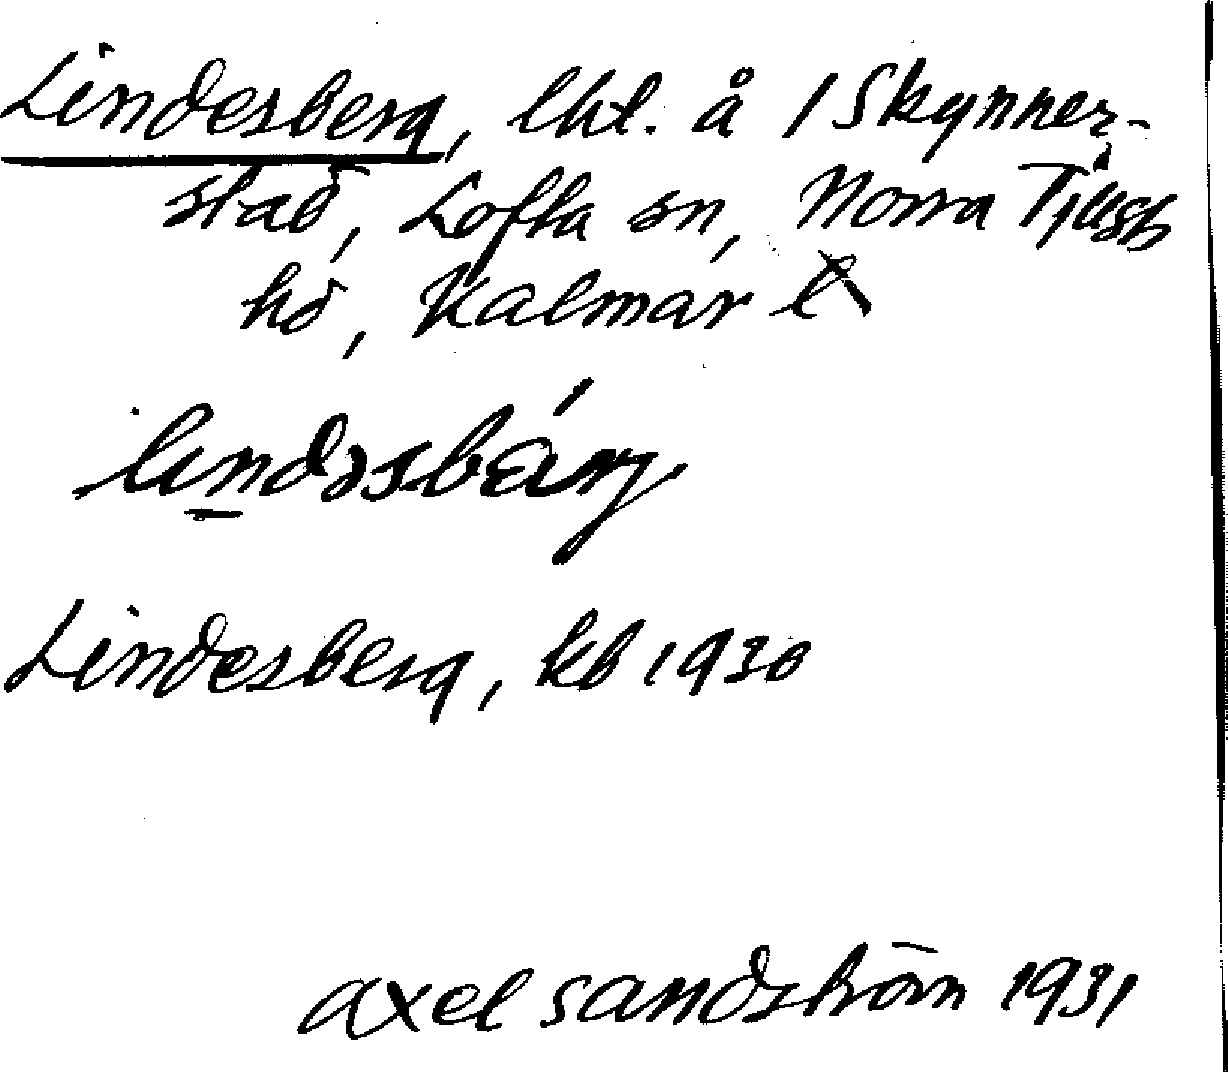 Lindesberg, lht. å 1 Skynner-
stad, Lofta sn, Norra Tjust
hd, Kalmar l
Lindesberg, kb 1930
Axel Sandström 1931